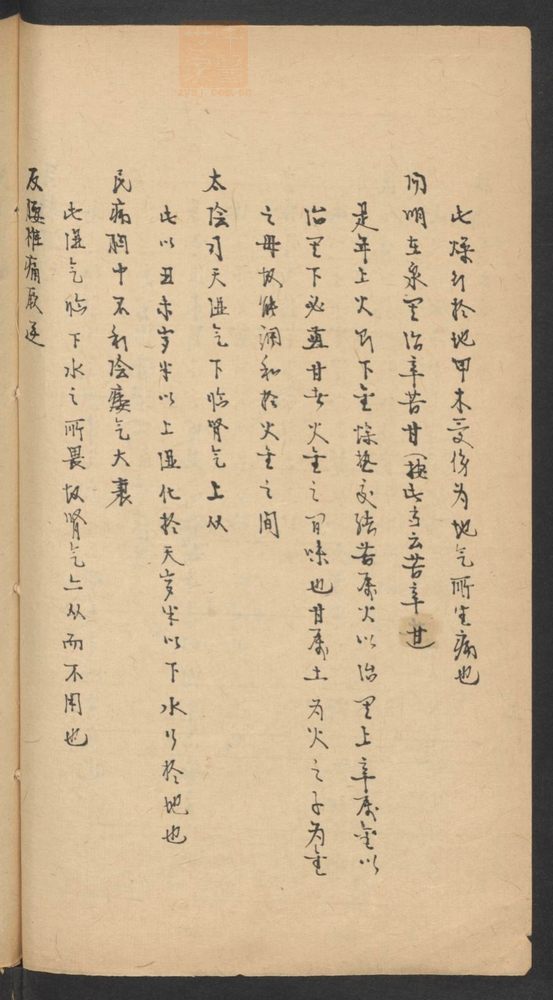 此燥行於地甲木受傷为地气所生病也
阳明在泉里治辛苦甘(按此当云苦辛甘
是年上火而下金燥热交结苦属火以治里上辛属金以
治里下必兼甘者火金之间味也甘属土为火之子为金
之母故能调和於火金之间
太陰司天湿气下临肾气上从
此以丑未岁半以上湿化於天岁半以下水行於地也
民病胸中不利陰痿气大衰
此湿气临下水之所畏故肾气上从而不用也
反腰椎痛厥逆